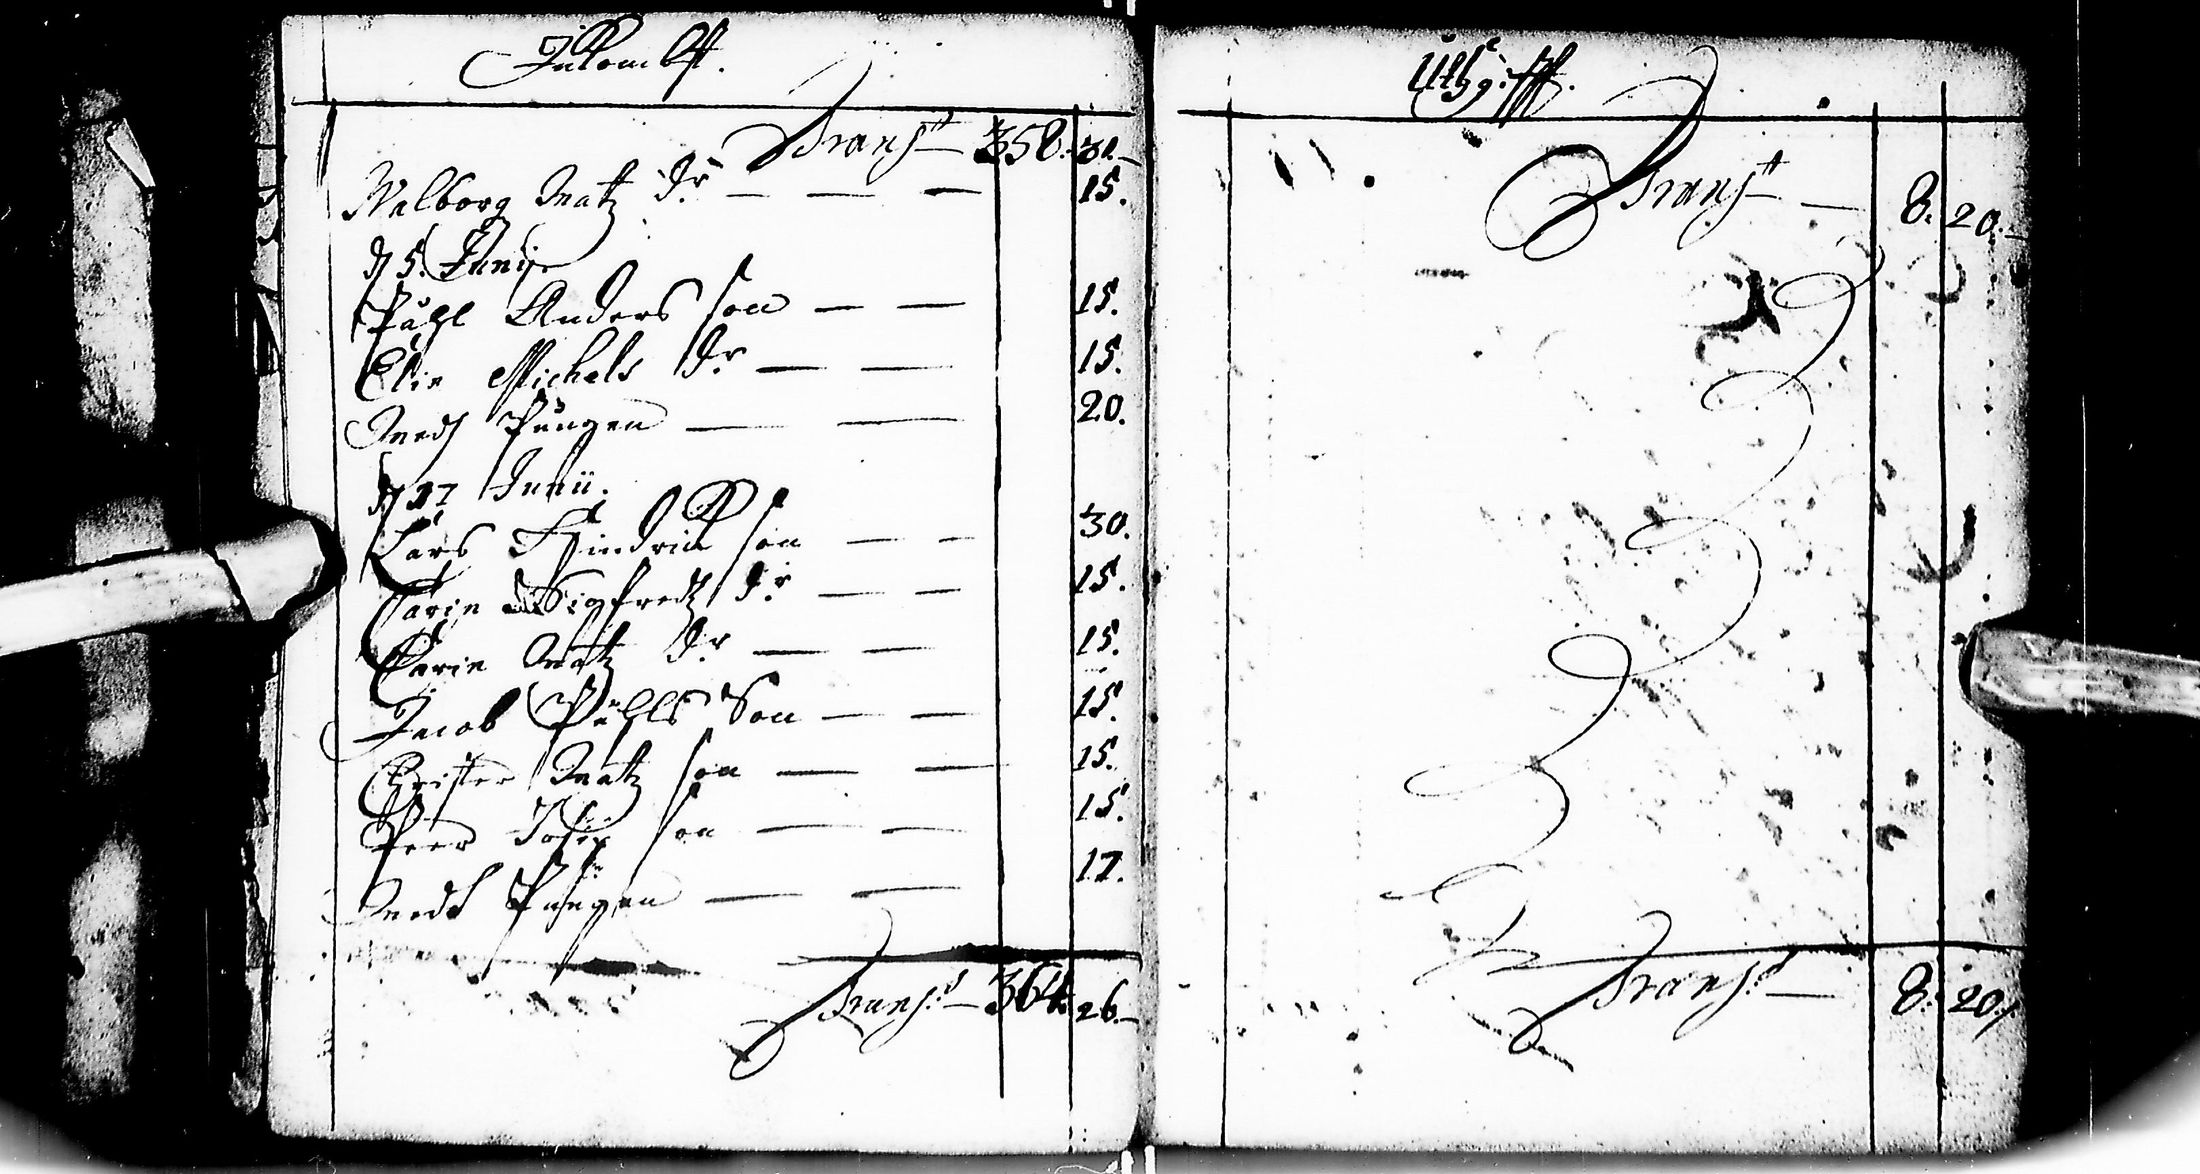 Inkombst.
Transp:t — 358. 30.
Walborg Matz d:r — — — 15.
d 5. Junij
Påhl Anders son — — 15.
Elin Michels d:r — — 15.
Medh Pungen — — 20.
d 17 Junii.
Lars Hindrick son — — 30.
Carin Sigfredz d:r — — 15.
Carin Matz d:r — — 15.
Jacob Påhls Son — — 15.
Christer Matz son — — 15.
Peer Josep son — — 15.
Medh Pungen — — 17.
Transp:t — 364. 26.
Uthgifft.
Transp:t — 8. 20.
Transp:t — 8. 20.